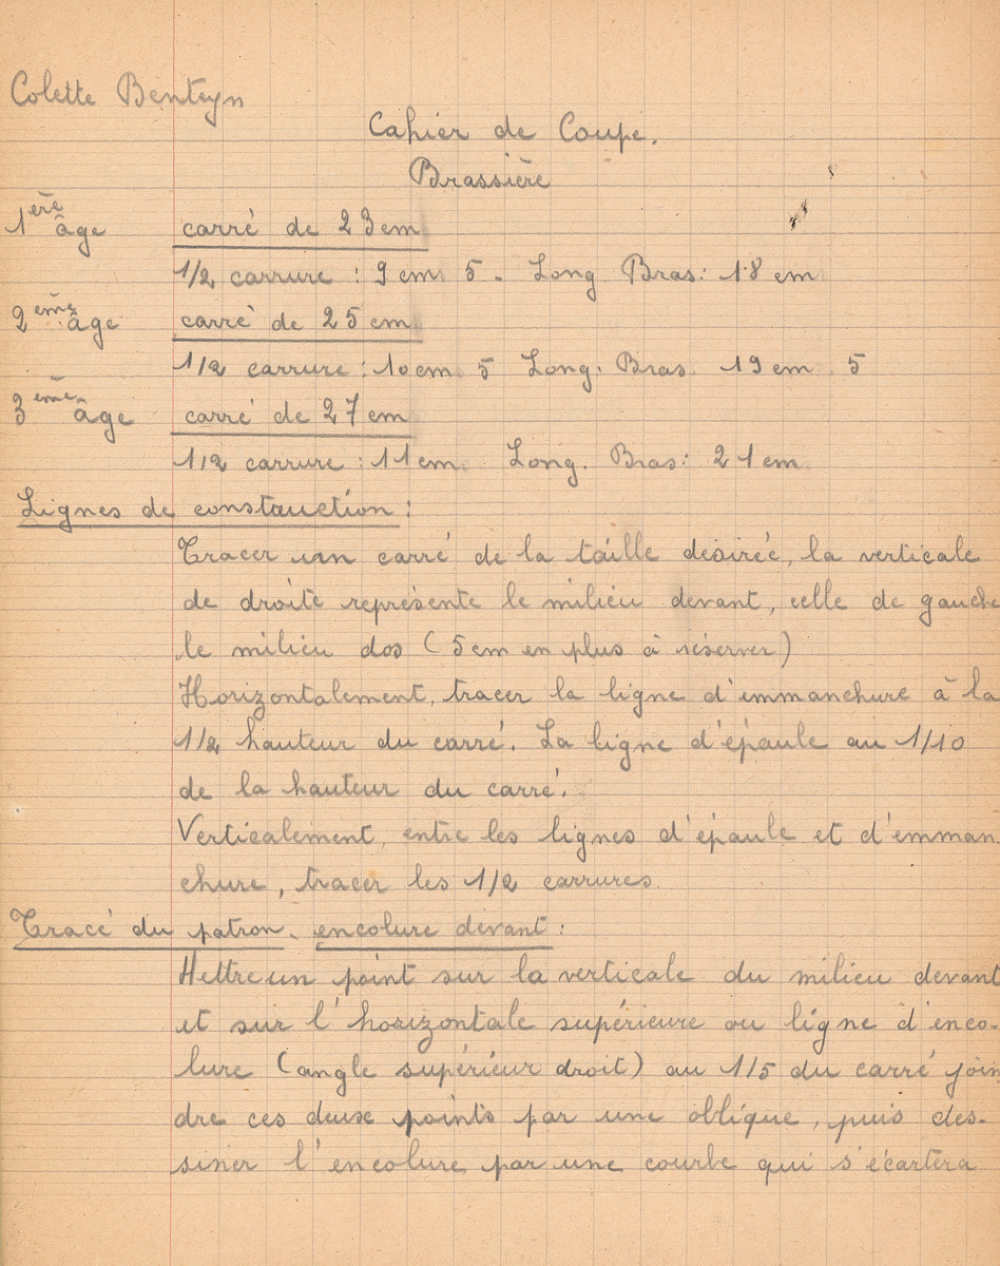 Colette Benteyn
Cahier de Coupe.
Brassière
1ère âge carré de 23 cm
1/2 carrure : 9 cm 5 - Long Bras : 18 cm
2ème âge carré de 25 cm
1/2 carrure : 10 cm 5 Long. Bras 19 cm 5
3ème âge carré de 27 cm
1/2 carrure : 11 cm Long. Bras : 21 cm
Lignes de construction :
Tracer un carré de la taille désirée, la verticale
de droite représente le milieu devant, celle de gauche
le milieu dos (5 cm en plus à réserver)
Horizontalement, tracer la ligne d'emmanchure à la
1/2 hauteur du carré. La ligne d'épaule au 1/10
de la hauteur du carré.
Verticalement, entre les lignes d'épaule et d'emman
chure, tracer les 1/2 carrures.
Tracé du patron - encolure devant :
Mettre un point sur la verticale du milieu devant
et sur l'horizontale supérieure ou ligne d'enco-
lure (angle supérieur droit) au 1/5 du carré join
dre ces deux points par une oblique, puis des-
siner l'encolure par une courbe qui s'écartera